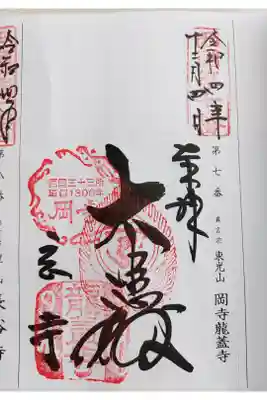 令和四年
十二月四日
奉拝
第七番
東光山
岡寺龍蓋寺
西国三十三所
草創1300年
岡寺
大悲殿
岡寺
令和四年
第八番
長谷寺